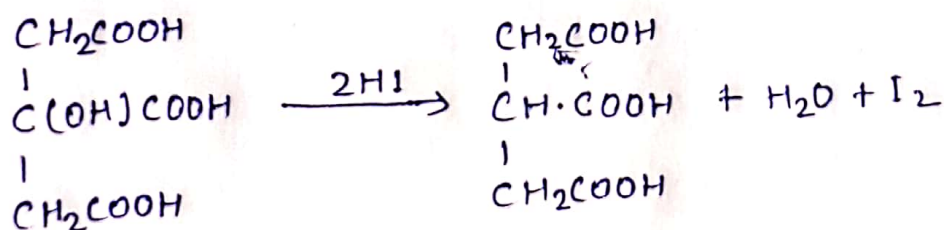 CH2COOH
|
C(OH)COOH
|
CH2COOH
2HI
CH2COOH
|
CH·COOH
|
CH2COOH
+ H2O + I2